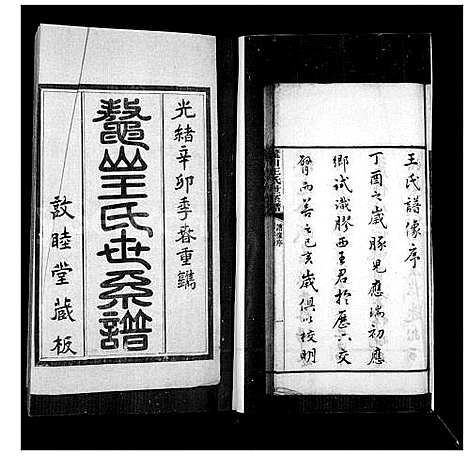 光緒辛卯季春重鐫
鼇山王氏世系譜
敦睦堂藏板
王氏譜像序
丁酉之歲豚兒應瑞初應
鄉試識膠西王君於歷下交
發而善之己亥歲俱以校明